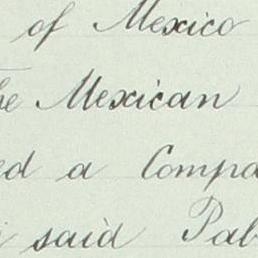 of Mexico
he Mexican
ed a Compa
said Pab